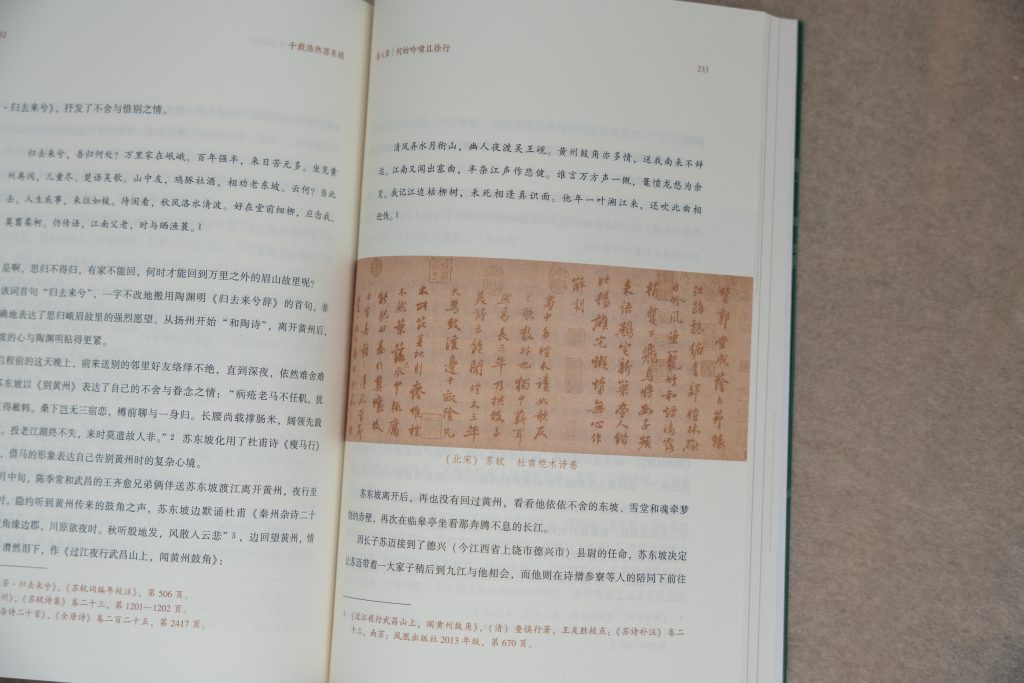 千载浩然苏东坡
·归去来兮》，抒发了不舍与惜别之情。
归去来兮，吾归何处？万里家在岷峨。百年强半，来日苦无多。坐见黄
州再闰，儿童尽、楚语吴歌。山中友，鸡豚社酒，相劝老东坡。云何？当此
去，人生底事，来往如梭。待闲看，秋风洛水清波。好在堂前细柳，应念我、
莫翦柔柯。仍传语，江南父老，时与晒渔蓑。1
是啊，思归不得归，有家不能回，何时才能回到万里之外的眉山故里呢？
该词首句“归去来兮”，一字不改地搬用陶渊明《归去来兮辞》的首句，非
确地表达了思归峨眉故里的强烈愿望。从扬州开始“和陶诗”，离开黄州后，
坡的心与陶渊明贴得更紧。
启程前的这天晚上，前来送别的邻里好友络绎不绝，直到深夜，依然难舍难
苏东坡以《别黄州》表达了自己的不舍与眷念之情：“病疮老马不任鞿，犹
王得敝帏。桑下岂无三宿恋，樽前聊与一身归。长腰尚载撑肠米，阔领先裁
。投老江湖终不失，来时莫遣故人非。”2 苏东坡化用了杜甫诗《瘦马行》
，借马的形象表达自己告别黄州时的复杂心境。
月中旬，陈季常和武昌的王齐愈兄弟俩伴送苏东坡渡江离开黄州，夜行至
时，隐约听到黄州传来的鼓角之声，苏东坡边默诵杜甫《秦州杂诗二十
角缘边郡，川原欲夜时。秋听殷地发，风散入云悲”3，边回望黄州，情
，潸然泪下，作《过江夜行武昌山上，闻黄州鼓角》：
芳·归去来兮》，《苏轼词编年校注》，第 506 页。
州》，《苏轼诗集》卷二十三，第 1201—1202 页。
杂诗二十首》，《全唐诗》卷二百二十五，第 2417 页。
第八章｜何妨吟啸且徐行
233
清风弄水月衔山，幽人夜渡吴王岘。黄州鼓角亦多情，送我南来不辞
远。江南又闻出塞曲，半杂江声作悲健。谁言万方声一概，鼍愤龙愁为余
变。我记江边枯柳树，未死相逢真识面。他年一叶溯江来，还吹此曲相
迎饯。1
背郭堂成蔭白茅緣
江路熟俯青郊榿林礙
日吟風葉籠竹和煙滴露
梢暫下飛烏將數子頻
來語鷰定新巢旁人錯
比揚雄宅懶惰無心作
解嘲
蜀中多榿木讀如欹仄
之欹散材也獨中薪耳
然易長三年乃拱故子
美詩云飽聞榿木三年
大為致溪邊十畝陰凡
木所芘其地則瘠惟榿
不然葉落泥水中輒腐
能肥田甚於糞壤故
田家喜種之得風葉聲
（北宋）苏轼　杜甫桤木诗卷
苏东坡离开后，再也没有回过黄州，看看他依依不舍的东坡、雪堂和魂牵梦
绕的赤壁，再次在临皋亭坐看那奔腾不息的长江。
因长子苏迈接到了德兴（今江西省上饶市德兴市）县尉的任命，苏东坡决定
让苏迈带着一大家子稍后到九江与他相会，而他则在诗僧参寥等人的陪同下前往
1 《过江夜行武昌山上，闻黄州鼓角》，（清）查慎行著，王友胜校点：《苏诗补注》卷二
十三，南京：凤凰出版社 2013 年版，第 670 页。